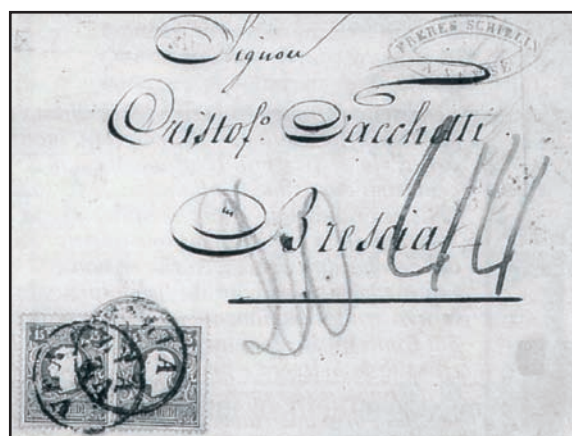 FRERES SCHIELIN
A VENISE
Signor
Cristof.º Sacchetti
in
Brescia
44
15